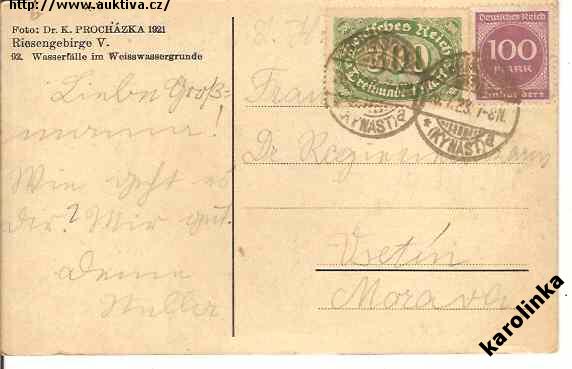 http://www.auktiva.cz/
Foto: Dr. K. PROCHÁZKA 1921
Riesengebirge V.
92. Wasserfälle im Weisswassergrunde
Liebe Groß-
mama!
Wie geht es
dir? Mir gut.
Deine
Deutsches Reich
300
Deutsches Reich
100
MARK
Einhundert
(KYNAST)
23. 7-8N.
(KYNAST)
Frau
Dr.
Vsetín
Morava
karolinka